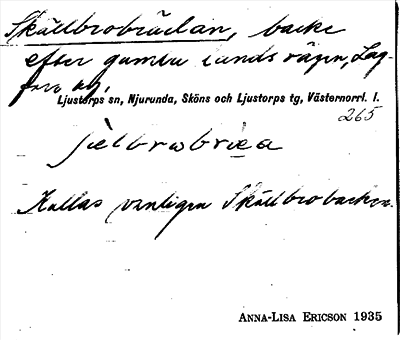 Skällbrobräckan, backe
efter gamla landsvägen, Lag-
fors by,
Ljustorps sn, Njurunda, Sköns och Ljustorps tg, Västernorrl. l.
265
Kallas vanligen Skällbrobacken.
ANNA-LISA ERICSON 1935